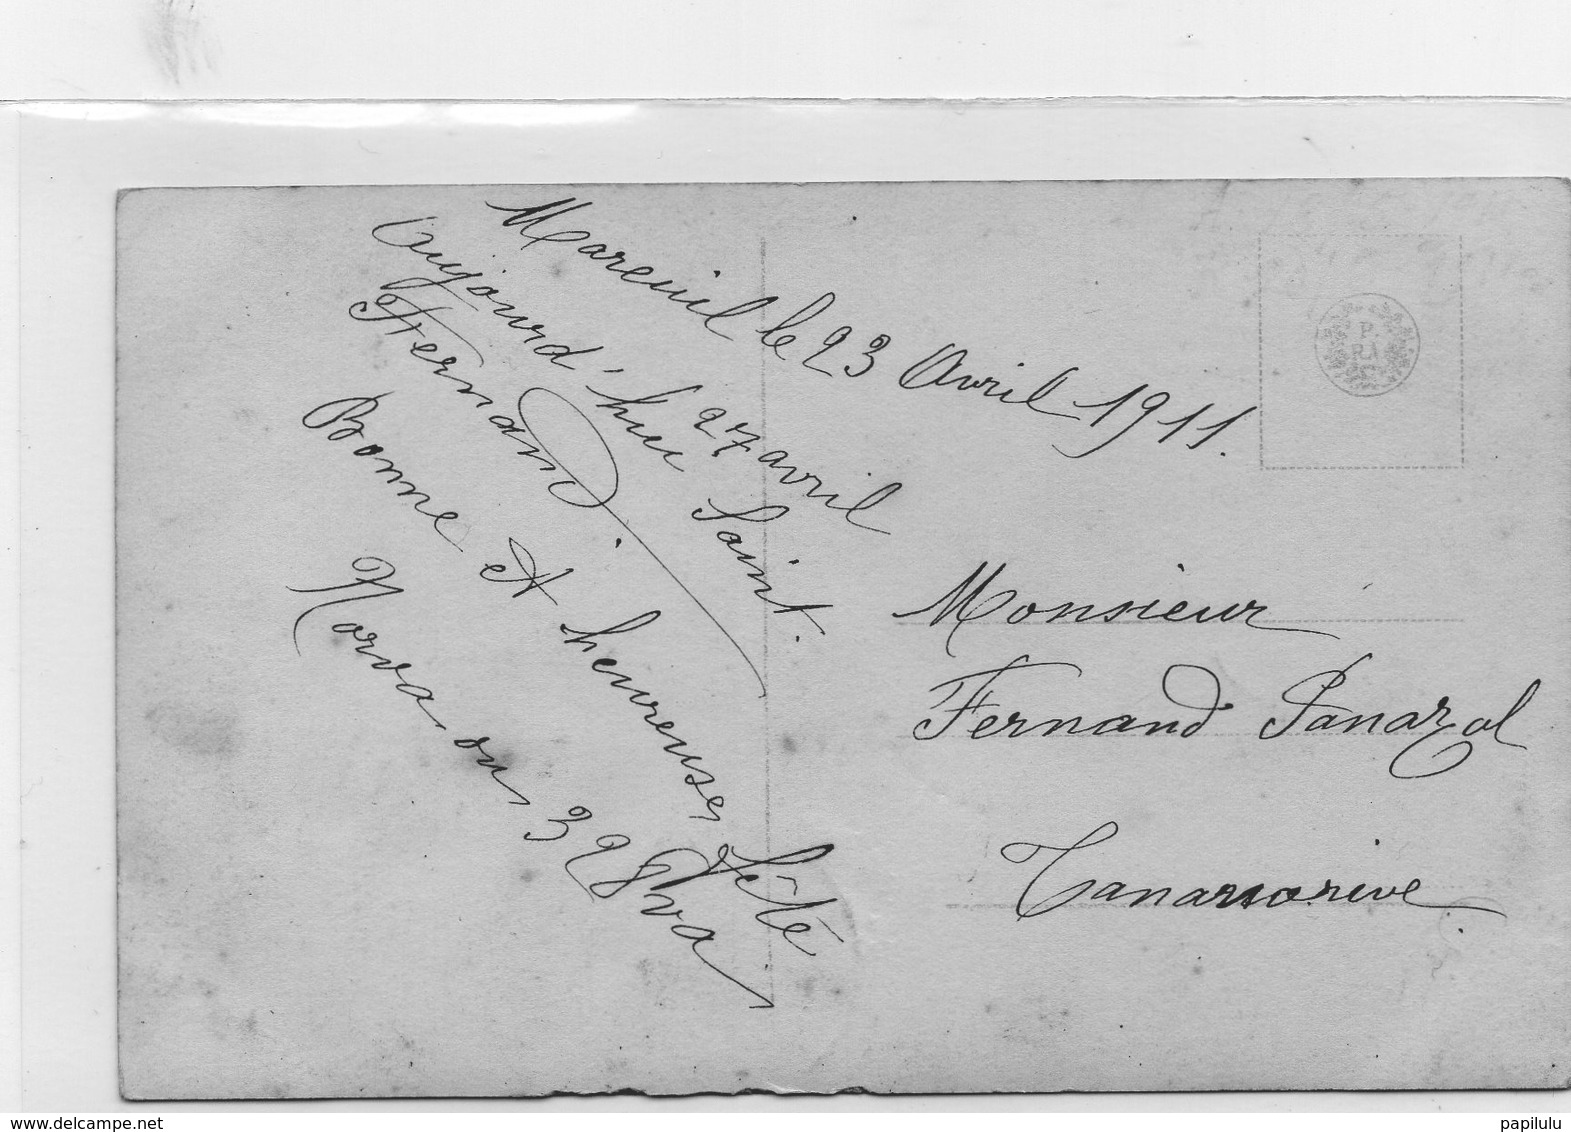 Mareuil le 23 Avril 1911.
Aujourd'hui 27 avril
Saint.
Fernand.
Bonne et heureuse fêté
P.
RA
Monsieur
Fernand Panazol
Tananarive.
www.delcampe.net
papilulu